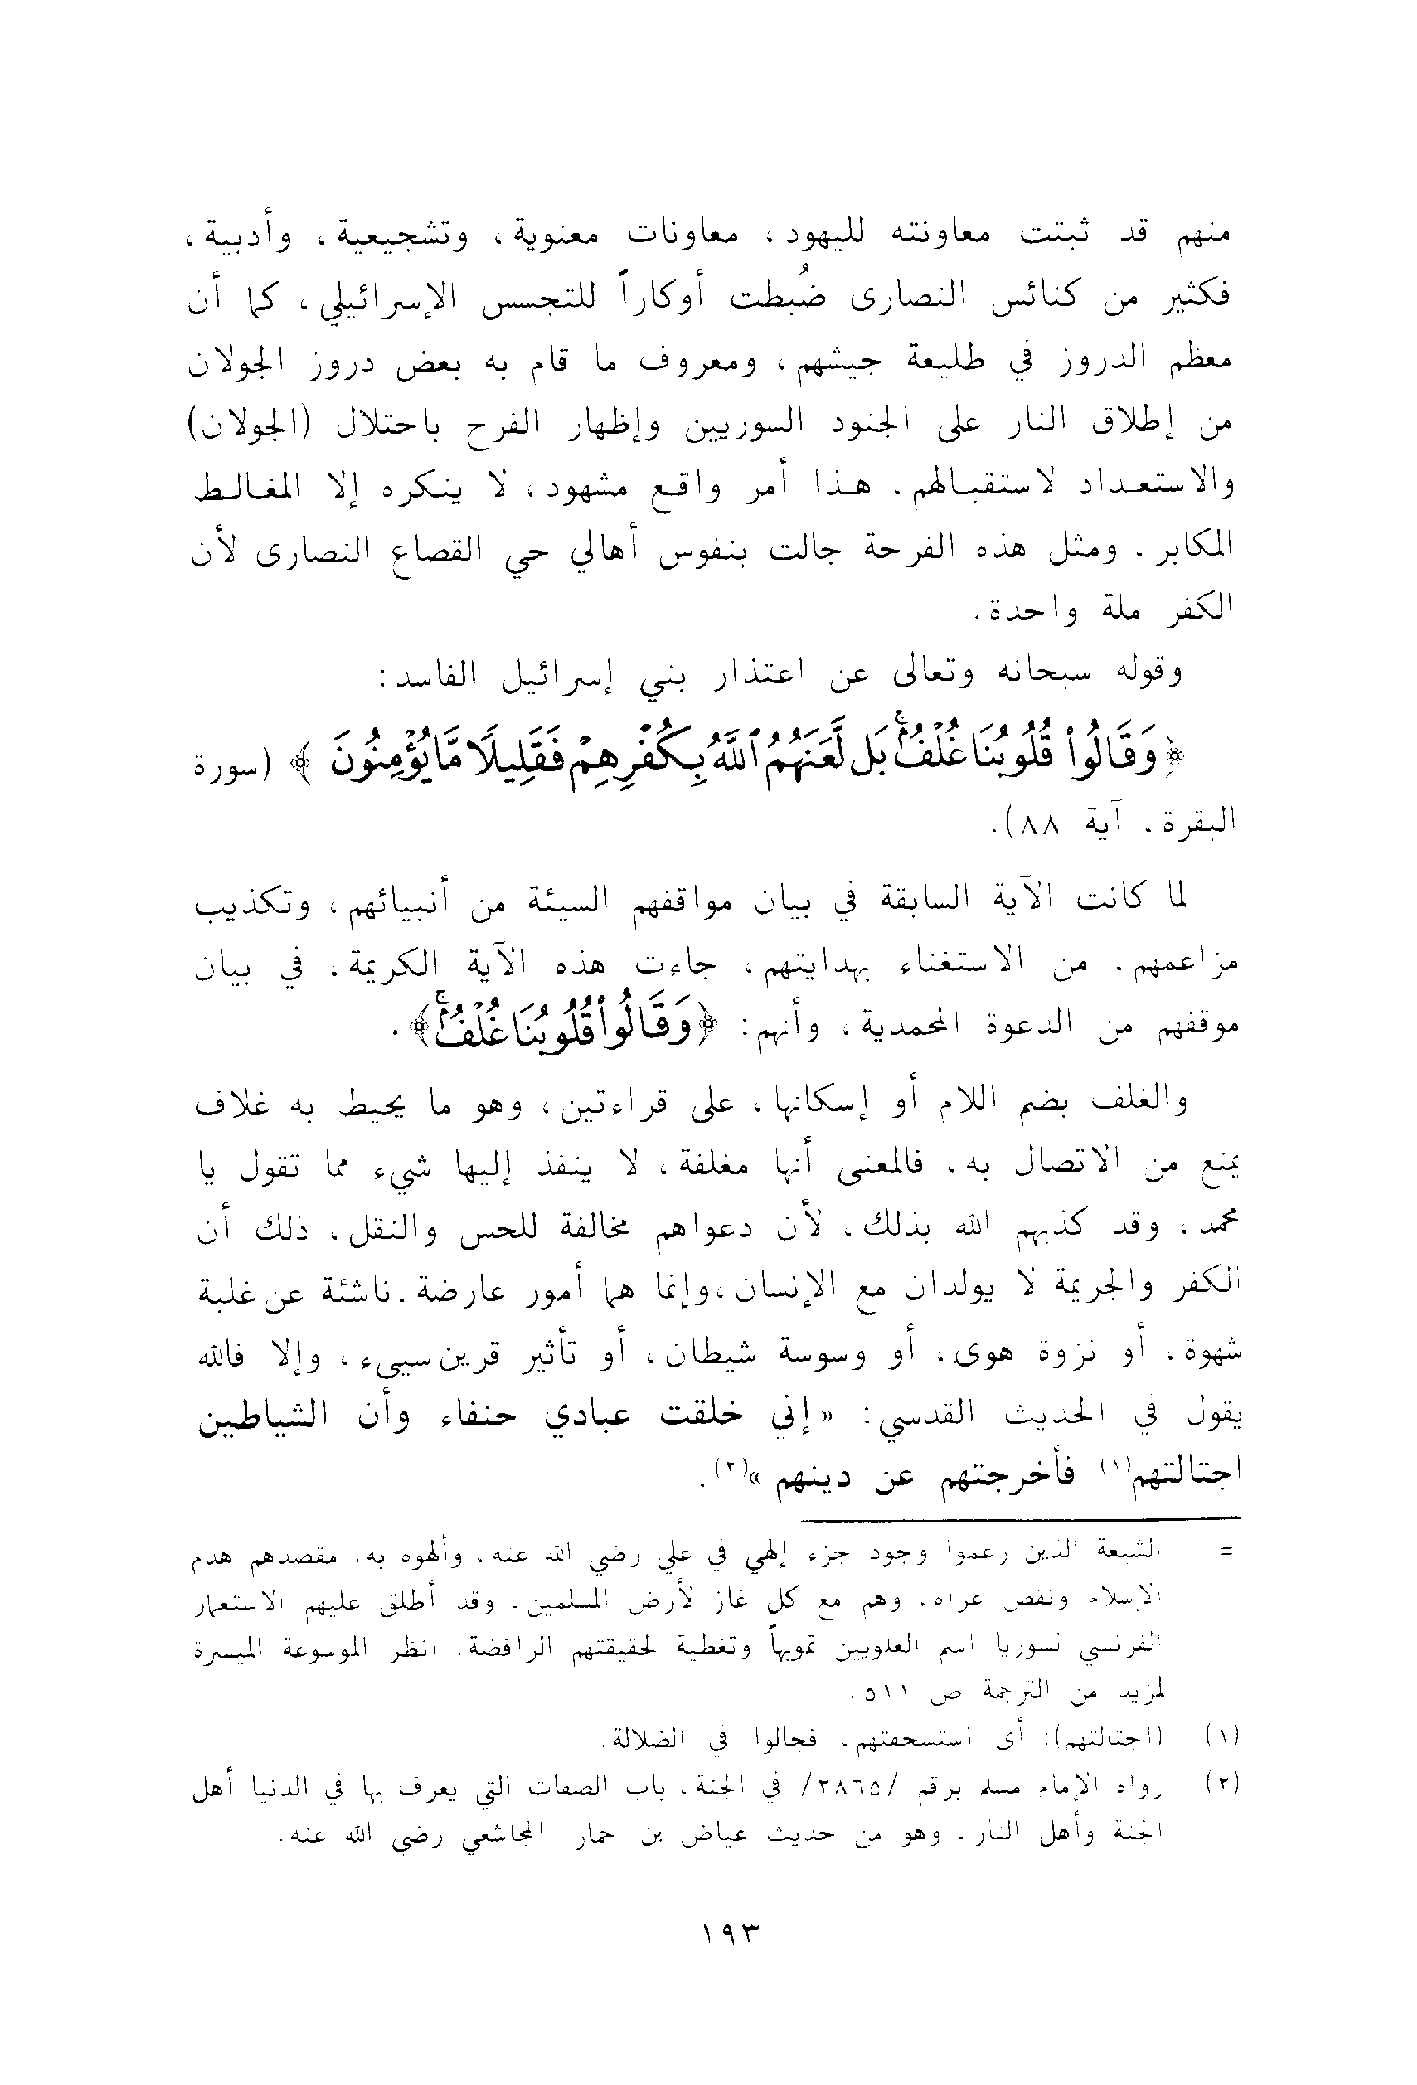 منهم قد ثبتت معاونته لليهود، معاونات معنوية، وتشجيعية، وأدبية،
فكثير من كنائس النصارى ضُبطت أوكاراً للتجسس الإسرائيلي، كما أن
معظم الدروز في طليعة جيشهم، ومعروف ما قام به بعض دروز الجولان
من إطلاق النار على الجنود السوريين وإظهار الفرح باحتلال (الجولان)
والاستعداد لاستقبالهم. هذا أمر واقع مشهود، لا ينكره إلا المغالط
المكابر. ومثل هذه الفرحة جالت بنفوس أهالي حي القصاع النصارى لأن
الكفر ملة واحدة.
وقوله سبحانه وتعالى عن اعتذار بني إسرائيل الفاسد:
﴿وَقَالُوا۟ قُلُوبُنَا غُلْفٌۢ ۚ بَل لَّعَنَهُمُ ٱللَّهُ بِكُفْرِهِمْ فَقَلِيلًا مَّا يُؤْمِنُونَ ﴾ (سورة
البقرة، آية ٨٨).
لما كانت الآية السابقة في بيان مواقفهم السيئة من أنبيائهم، وتكذيب
مزاعمهم. من الاستغناء بهدايتهم، جاءت هذه الآية الكريمة، في بيان
موقفهم من الدعوة المحمدية، وأنهم: ﴿وَقَالُوا۟ قُلُوبُنَا غُلْفٌۢ ۚ﴾.
والغلف بضم اللام أو إسكانها، على قراءتين، وهو ما يحيط به غلاف
يمنع من الاتصال به، فالمعنى أنها مغلفة، لا ينفذ إليها شيء مما تقول يا
محمد، وقد كذبهم الله بذلك، لأن دعواهم مخالفة للحس والنقل، ذلك أن
الكفر والجريمة لا يولدان مع الإنسان، وإنما هما أمور عارضة. ناشئة عن غلبة
شهوة، أو نزوة هوى، أو وسوسة شيطان، أو تأثير قرين سييء، وإلا فالله
يقول في الحديث القدسي: «إني خلقت عبادي حنفاء وأن الشياطين
اجتالتهم(١) فأخرجتهم عن دينهم»(٢).
= الشيعة الذين زعموا وجود جزء إلهي في علي رضي الله عنه، وألهوه به، مقصدهم هدم
الإسلام ونقض عراه، وهم مع كل غاز لأرض المسلمين، وقد أطلق عليهم الاستعمار
الفرنسي لسوريا اسم العلويين تمويهاً وتغطية لحقيقتهم الرافضة. انظر الموسوعة الميسرة
لمزيد من الترجمة ص ٥١١.
(١) (اجتالتهم): أي استخفتهم، فجالوا في الضلالة.
(٢) رواه الإمام مسلم برقم /٢٨٦٥/ في الجنة، باب الصفات التي يعرف بها في الدنيا أهل
الجنة وأهل النار. وهو من حديث عياض بن حمار المجاشعي رضي الله عنه.
١٩٣